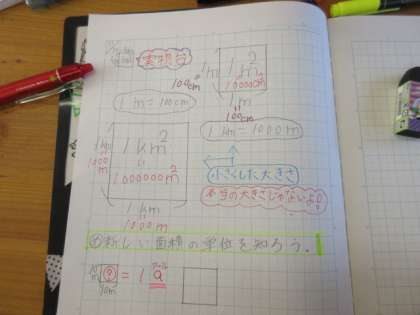 1m²
1m
10000cm²
100cm
1m
100cm
1m=100cm
1km=1000m
1km²
1km
1000m
1000000m²
1km
1000m
小さくした大きさ
本当の大きさじゃないよ!
新しい面積の単位を知ろう。
10m
?
=1a
アール
10m